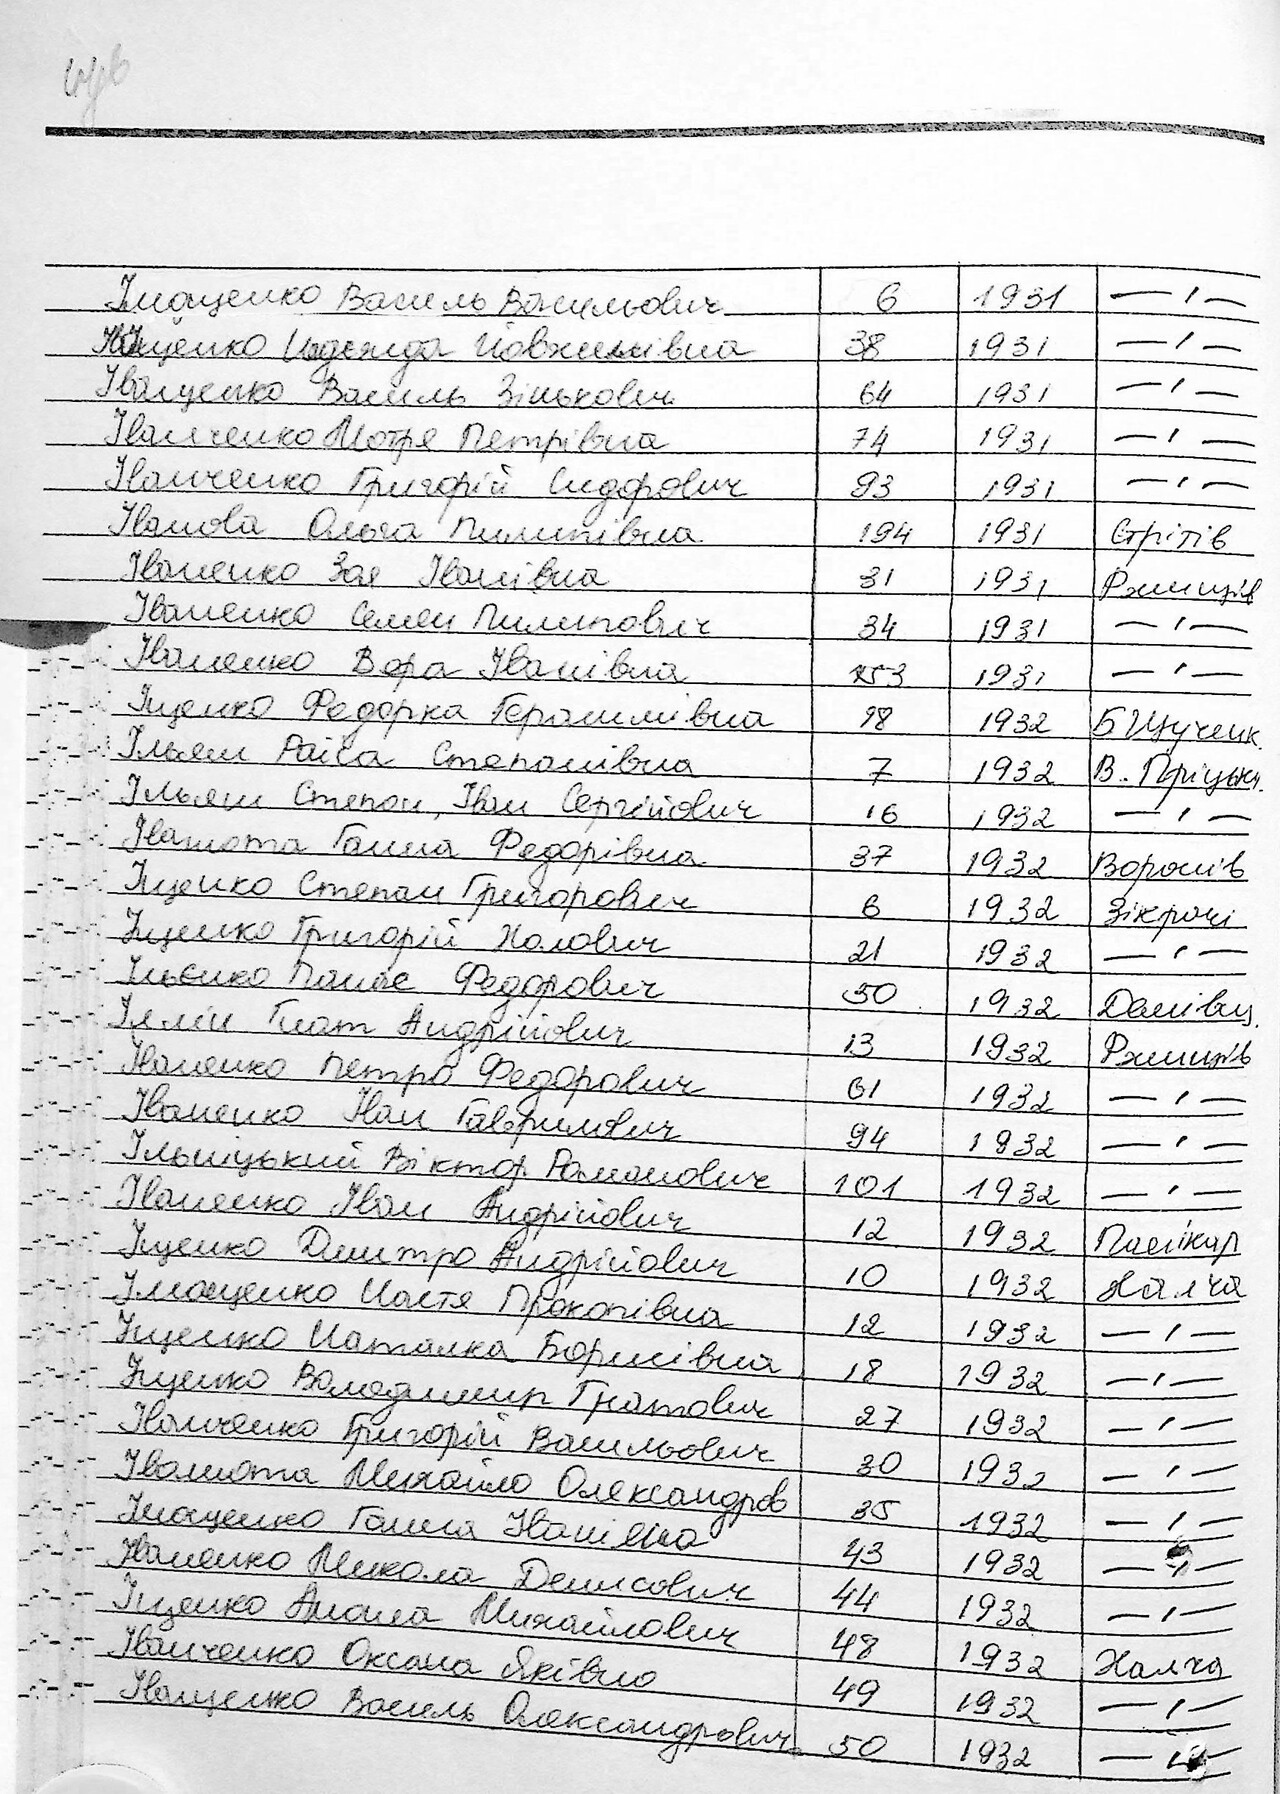 Імащенко Василь Васильович 6 1931 —"—
Надежда Йовхимівна 38 1931 —"—
Іващенко Василь Зінькович 64 1931 —"—
Іванченко Мотря Петрівна 74 1931 —"—
Іванченко Григорій Сидорович 93 1931 —"—
Іванова Ольга Пилипівна 194 1931 Стрітів
Іваненко Зоя Іванівна 31 1931 Ржищів
Іваненко Семен Пилипович 34 1931 —"—
Іваненко Вера Іванівна 1931 —"—
Іщенко Федорка Герасимівна 18 1932 Б Щученк.
Ільяш Раїса Степанівна 7 1932 В. Пріцьки.
Ільяш Степан, Іван Сергійович 16 1932 —"—
Івашота Ганна Федорівна 37 1932 Воронів
Іщенко Степан Григорович 6 1932 Зікрачі
Іщенко Григорій Халович 21 1932 —"—
Ільєнко Панас Федорович 50 1932
Іллін Гнат Андрійович 13 1932 Ржищів
Іваненко Петро Федорович 61 1932 —"—
Іваненко Іван Гаврилович 94 1932 —"—
Ільніцький Віктор Романович 101 1932 —"—
Іваненко Іван Андрійович 12 1932 Панікар
Іщенко Дмитро Андрійович 10 1932 Халча
Імащенко Настя Прокопівна 12 1932 —"—
Іщенко Наталка Борисівна 18 1932 —"—
Іщенко Володимир Гнатович 27 1932 —"—
Іванченко Григорій Васильович 30 1932 —"—
Івашота Михайло Олександров 35 1932 —"—
Імащенко Ганна Іванівна 43 1932 —"—
Іваненко Микола Денисович 44 1932 —"—
Іщенко Михайлович 48 1932 Халча
Іванченко Оксана Яківна 49 1932 —"—
Іващенко Василь Олександрович 50 1932 —"—